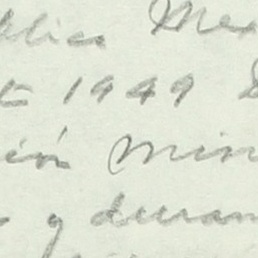 blica Mex
t 1949 D
ión Min
y duran